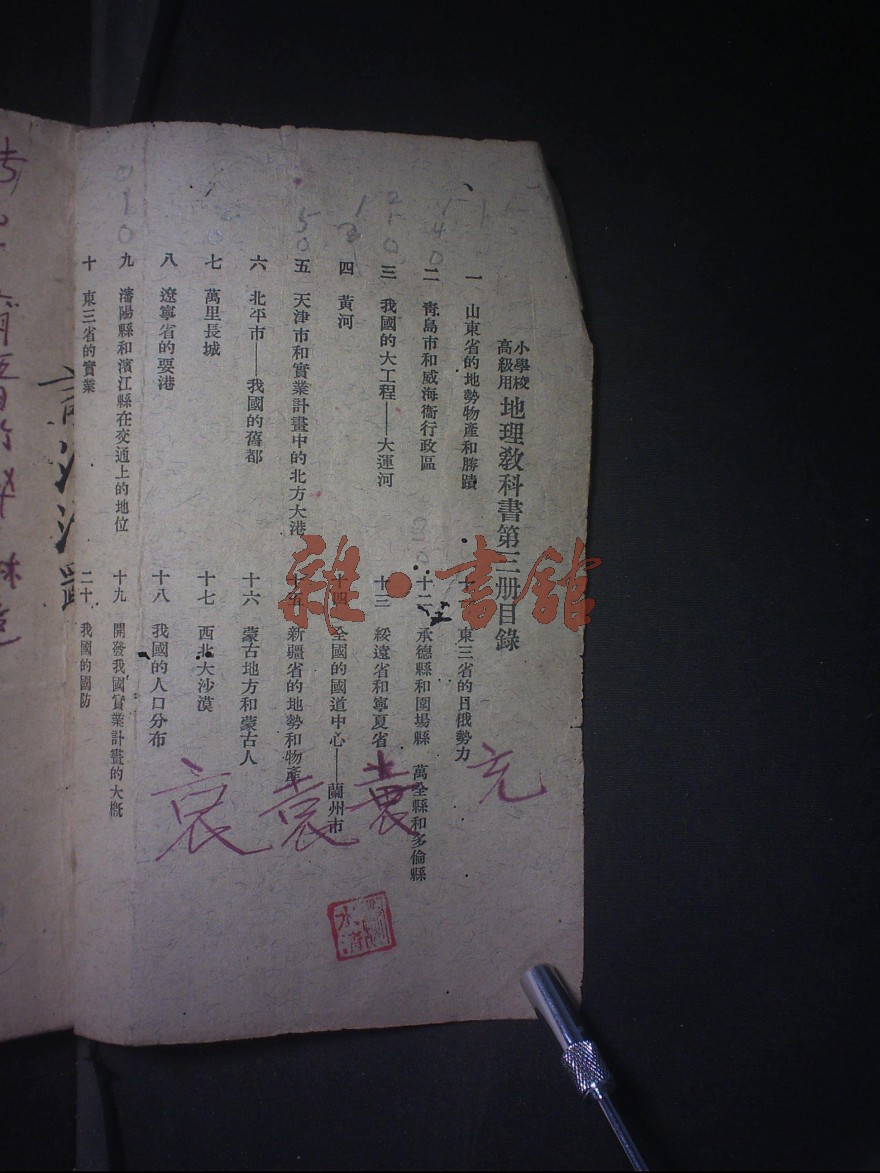 小學校
高級用
地理教科書第三册目錄
一 山東省的地勢物產和勝蹟
二 青島市和威海衞行政區
三 我國的大工程——大運河
四 黃河
五 天津市和實業計畫中的北方大港
六 北平市——我國的舊都
七 萬里長城
八 遼寧省的要港
九 瀋陽縣和濱江縣在交通上的地位
十 東三省的實業
十一 東三省的日俄勢力
十二 承德縣和圍場縣 萬全縣和多倫縣
十三 綏遠省和寧夏省
十四 全國的國道中心——蘭州市
十五 新疆省的地勢和物產
十六 蒙古地方和蒙古人
十七 西北大沙漠
十八 我國的人口分布
十九 開發我國實業計畫的大概
二十 我國的國防
雜·書館